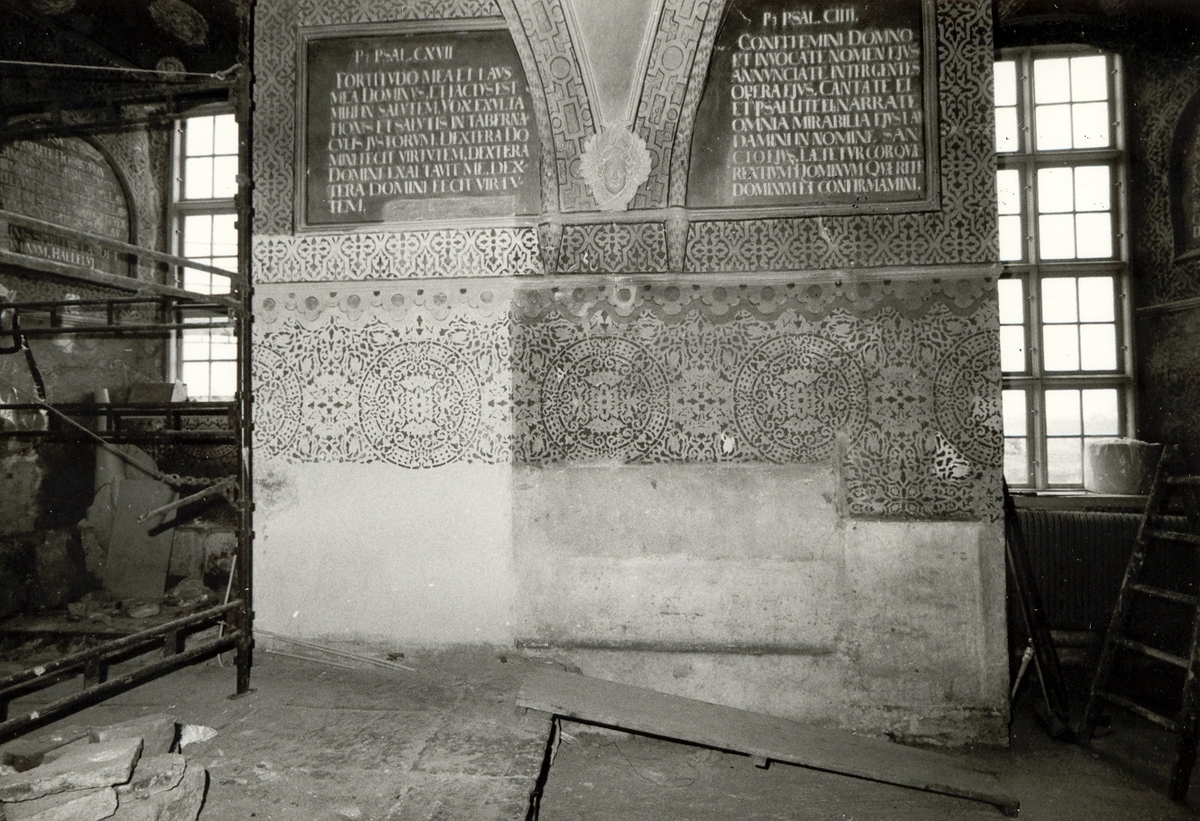 Pꝫ PSAL. CXVII
FORTITVDO MEA ET LAVS
MEA DOMINVS, ET FACTVS EST
MIHI IN SALVTEM, VOX EXVLTA
TIONIS ET SALVTIS IN TABERNA-
CVLIS JVSTORVM, DEXTERA DO
MINI FECIT VIRTVTEM, DEXTERA
DOMINI EXALTAVIT ME, DEX-
TERA DOMINI FECIT VIRTV-
TEM,
Pꝫ PSAL. CIIII,
CONFITEMINI DOMNO
ET INVOCATE NOMEN EJVS
ANNVNCIATE INTER GENTES
OPERA EJVS, CANTATE EI
ET PSALLITE EI, NARRATE
OMNIA MIRABILIA EJVS LAV
DAMINI IN NOMINE SAN
CTO EJVS, LÆTETVR COR QVÆ
RENTIVM DOMINVM QVERITE
DOMINVM ET CONFIRMAMINI,
NVM, HALLELV